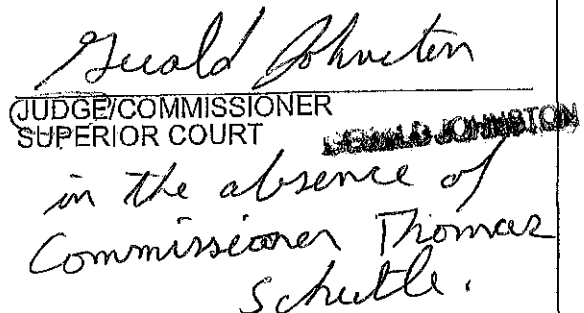 Gerald Johnston
JUDGE/COMMISSIONER
SUPERIOR COURT GERALD JOHNSTON
in the absence of
Commissioner Thomas
Schutte.